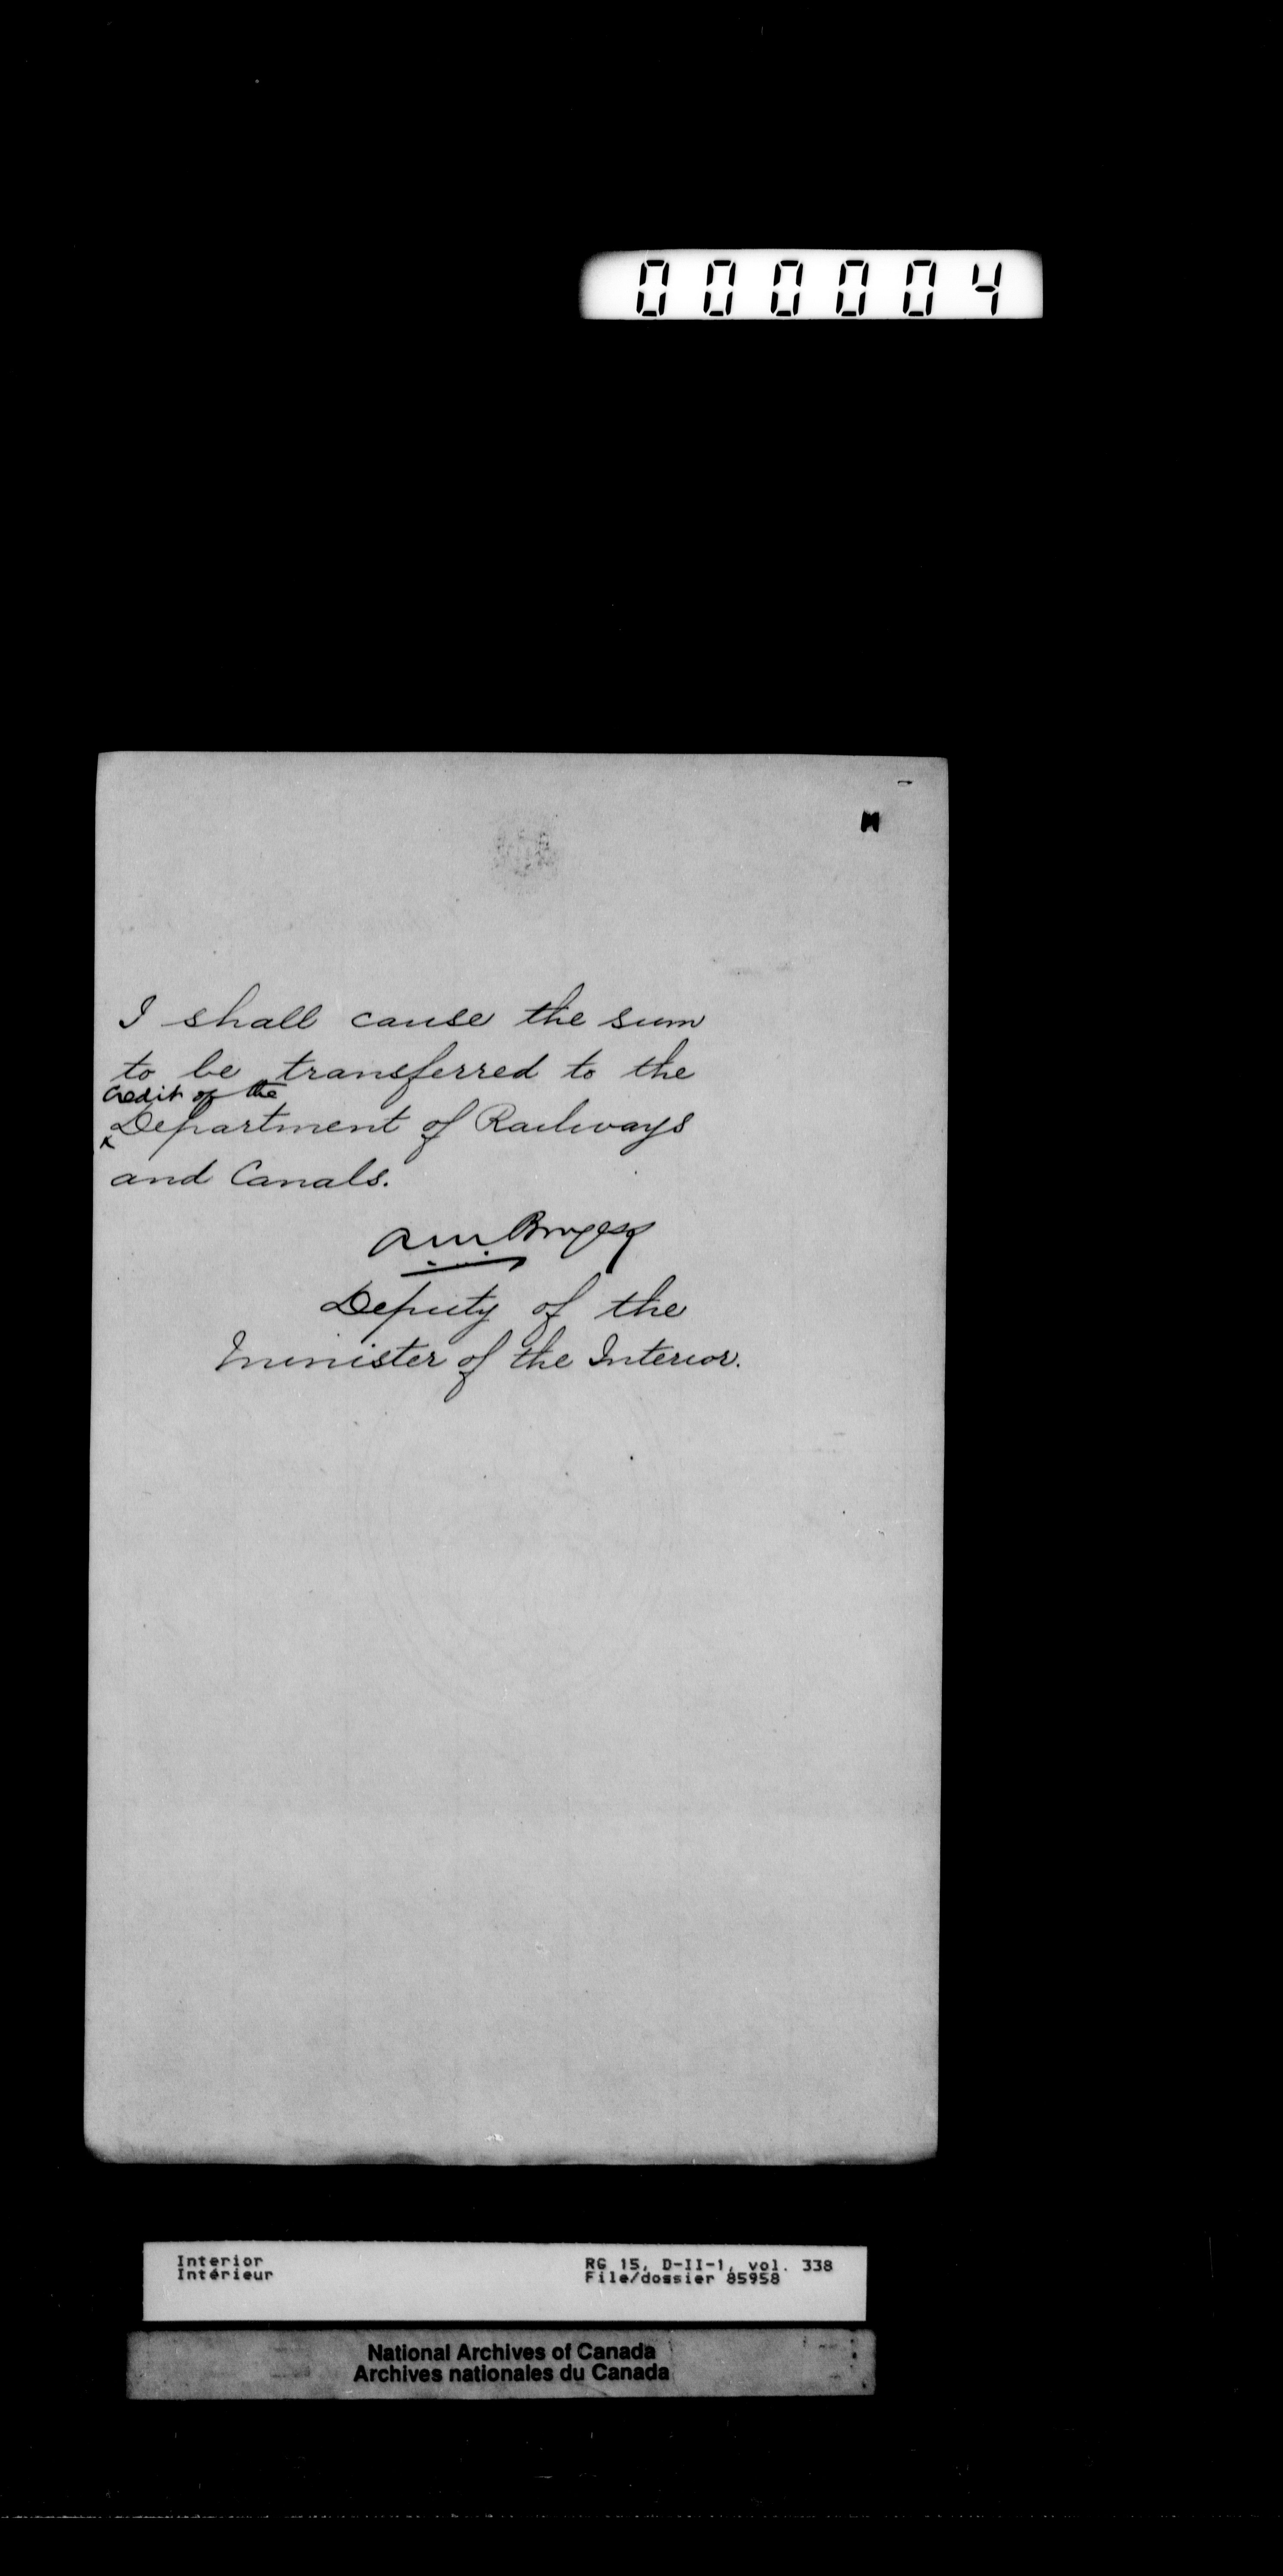 000004
I shall cause the sum
to be transferred to the
Credit of the
Department of Railways
and Canals.
A.M. Burgess
Deputy of the
Minister of the Interior.
Interior
Intérieur
RG 15, D-II-1, vol. 338
File/dossier 85958
National Archives of Canada
Archives nationales du Canada